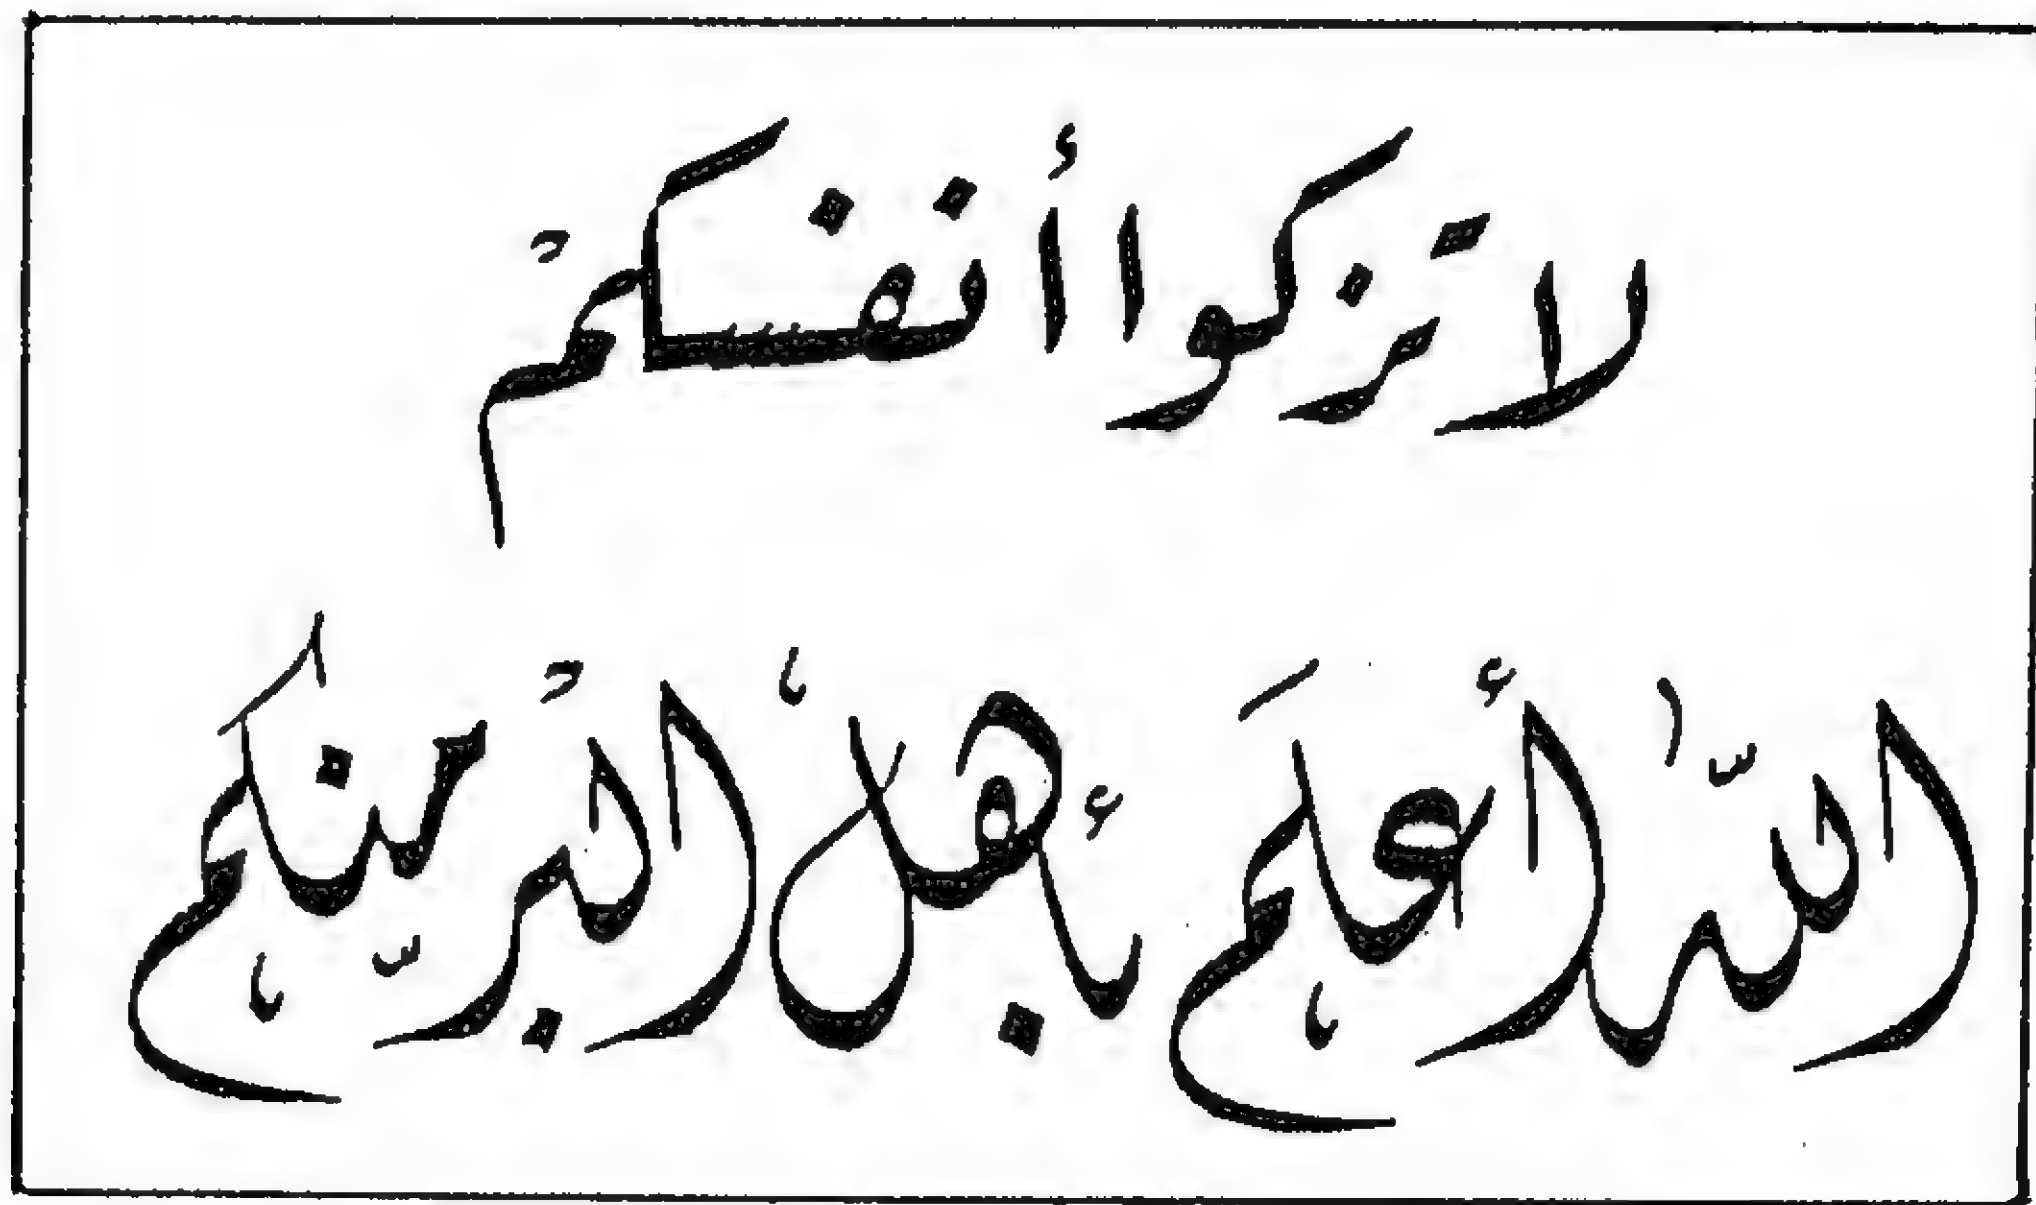 لا تزكوا أنفسكمْ
اللّٰه أعلم بأهل الْبرّ منكم